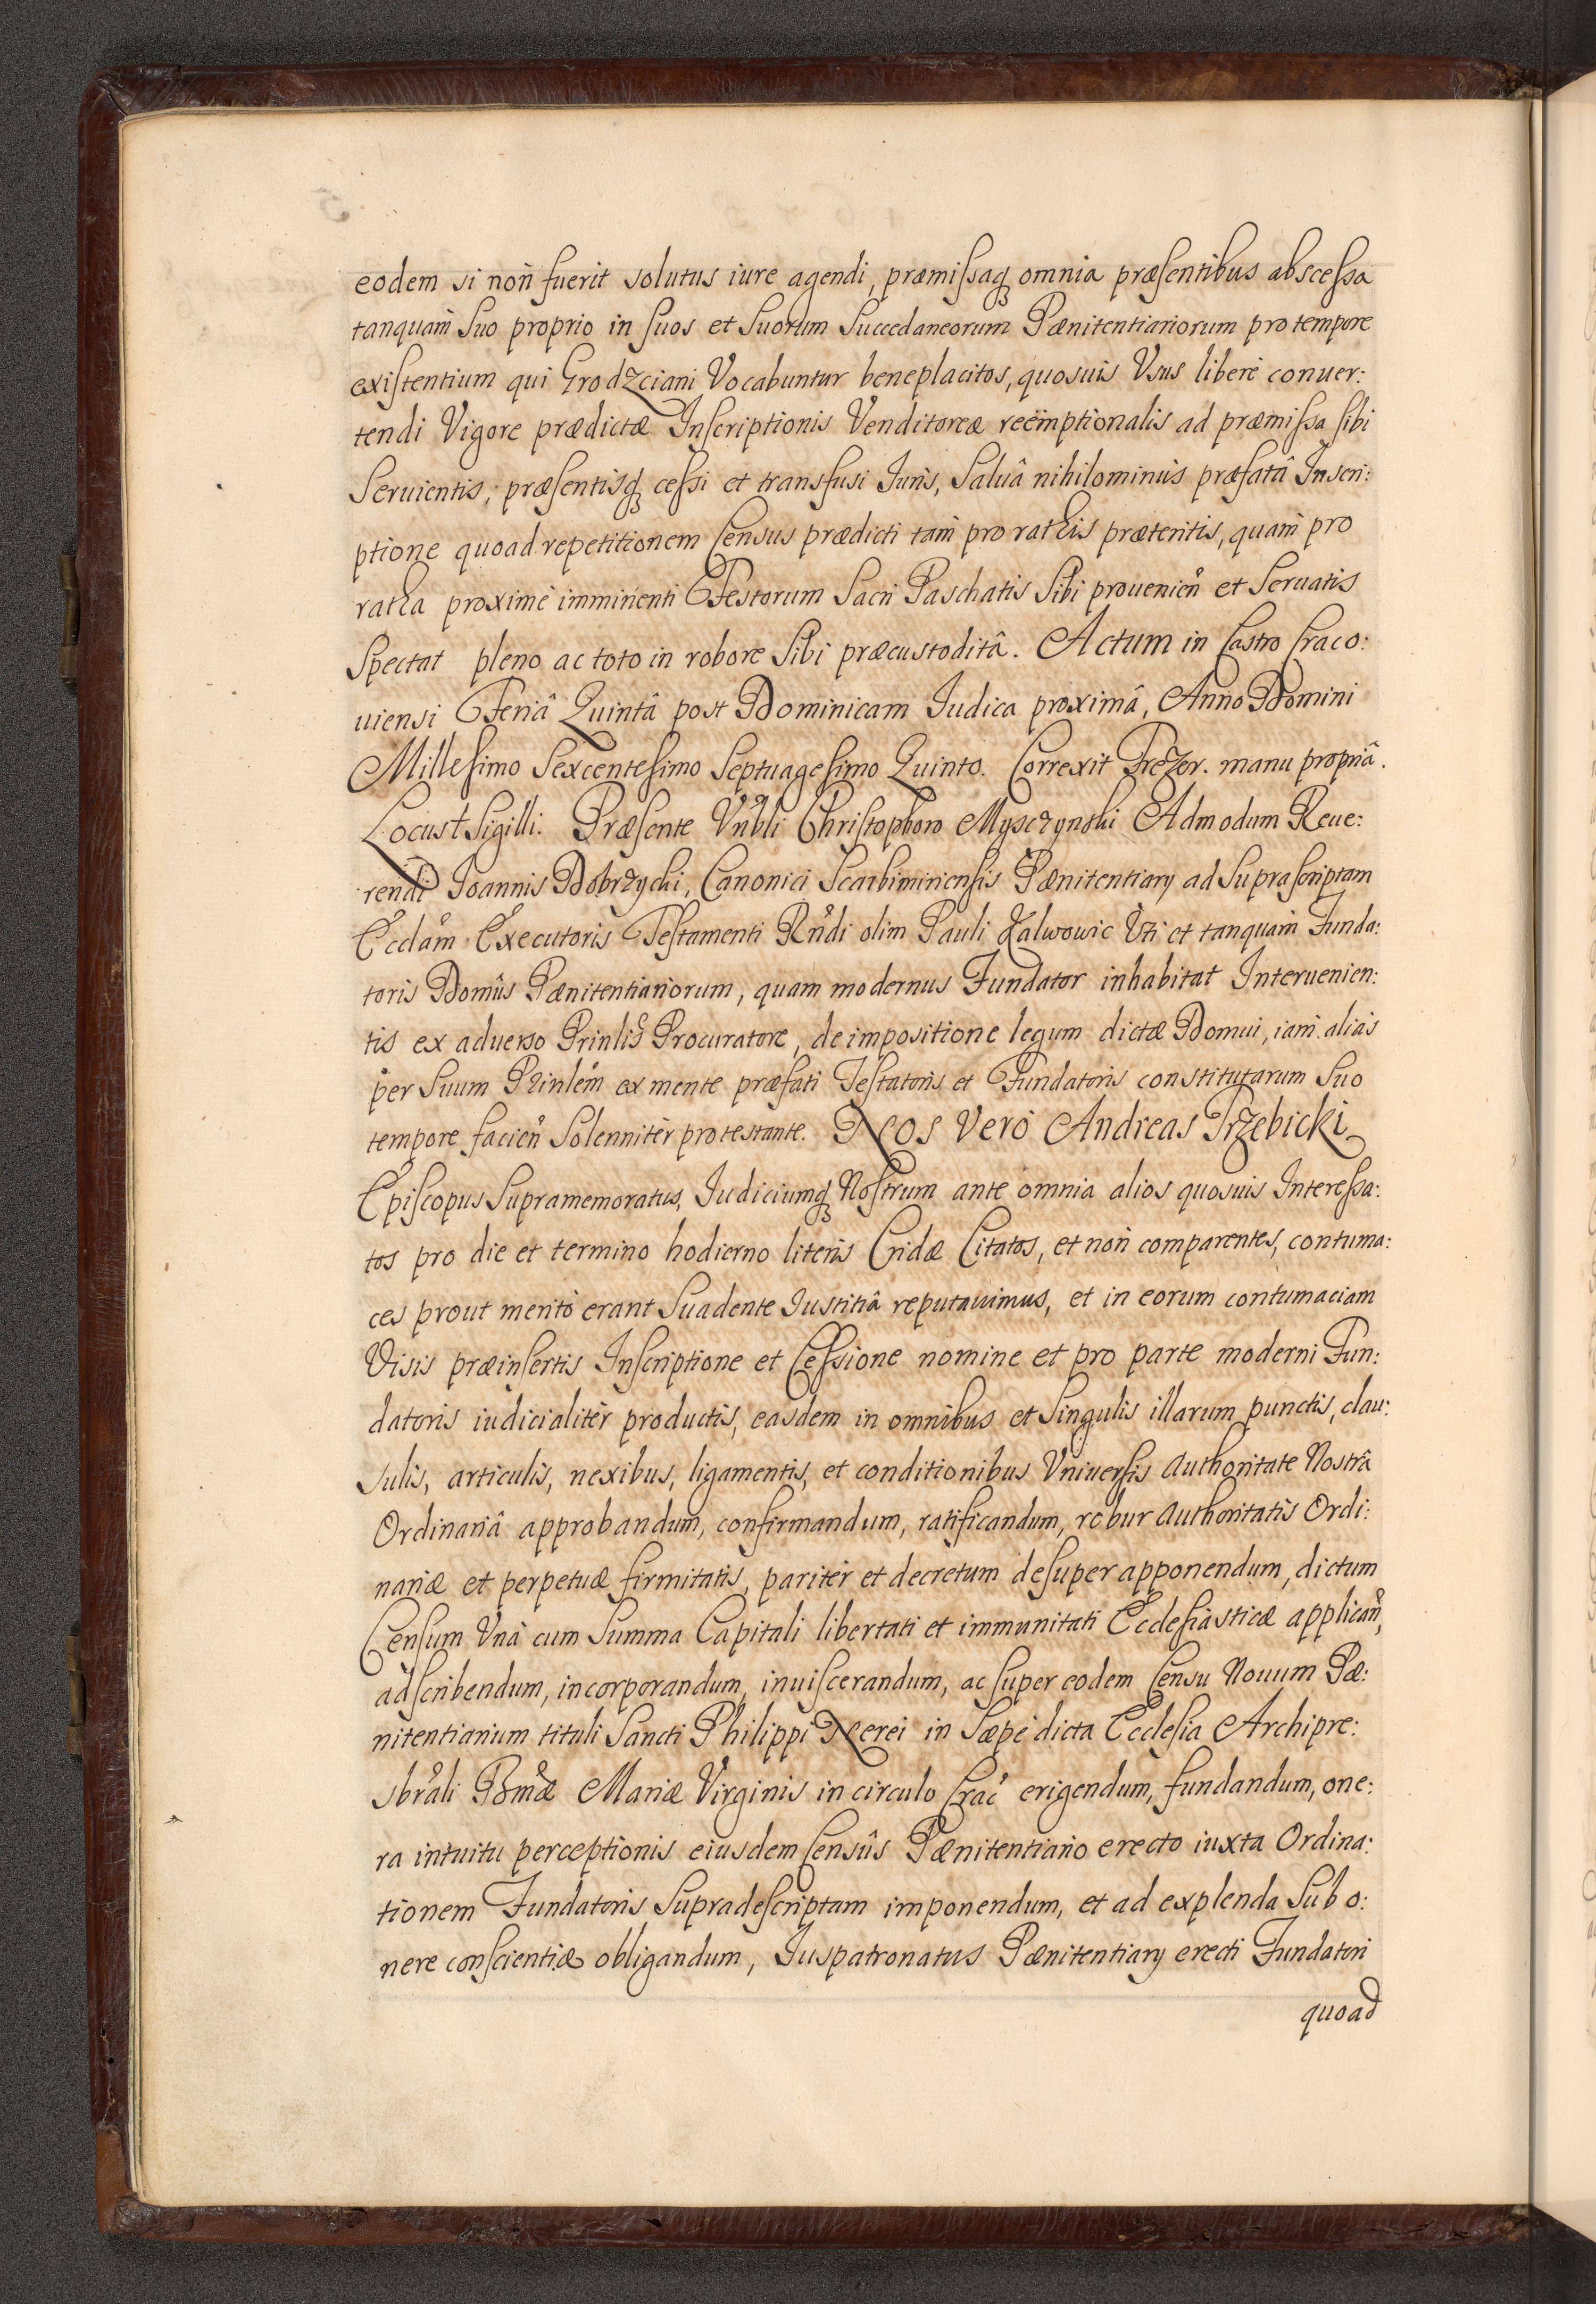 eodem si non̄ fuerit solutus iure agendi, præmissaq́ omnia præsentibus abscessa
tanquam̀ Suo proprio in suos et Suorum Succedaneorum Pænitentiariorum pro tempore
existentium qui Grodzciani Vocabuntur beneplacitos, quosuis Vsus liberè conuer:
tendi Vigore prædictæ Inscriptionis Venditoreæ reëmptionalis ad præmissa sibi
Seruientis, præsentisq́ cessi et transfusi Iuris, Saluâ nihilominùs præfatâ Inscri:
ptione quoad repetitionem Census prædicti tam̀ pro rathis præteritis, quam̀ pro
ratha proximè imminenti Festorum Sacri Paschatis Sibi prouenien̊ et Seruatis
Spectat pleno ac toto in robore Sibi præcustoditâ. Actum in Castro Craco:
uiensi Feriâ Quintâ post Dominicam Iudica proximâ, Anno Domini
Millesimo Sexcentesimo Septuagesimo Quinto. Correxit Trezer. manu propriâ.
Locus † Sigilli. Præsente Vn̊bli Christophoro Mysczynski Admodum Reue:
rendi Ioannis Dobrzycki, Canonici Scarbimiriensis Pænitentiarij ad Suprascriptam
Ecclåm Executoris Testamenti Rn̊di olim Pauli Halwowic Vti et tanquam̀ Funda:
toris Domûs Pænitentiariorum, quam modernus Fundator inhabitat Interuenien:
tis ex aduerso Prinlis̊ Procuratore, de impositione legum dictæ Domui, iam̀ aliàs
per Suum Prinle̊m ex mente præfati Testatoris et Fundatoris constitutarum Suo
tempore facien̊ Solennitèr protestante. Nos Verò Andreas Trzebicki
Episcopus Supramemoratus, Iudiciumq́ Nostrum ante omnia alios quosuis Interessa:
tos pro die et termino hodierno literis Cridæ Citatos, et non̄ comparentes, contuma:
ces prout meritò erant Suadente Iustitiâ reputauimus, et in eorum contumaciam
Visis præinsertis Inscriptione et Cessione nomine et pro parte moderni Fun:
datoris iudicialitèr productis, easdem in omnibus et Singulis illarum punctis, clau:
sulis, articulis, nexibus, ligamentis, et conditionibus Vniuersis Authoritate Nostrâ
Ordinariâ approbandum, confirmandum, ratificandum, robur Authoritatis Ordi:
nariæ et perpetuæ firmitatis, paritèr et decretum desuper apponendum, dictum
Censum Vnà cum Summa Capitali libertati et immunitati Ecclesiasticæ applican̊,
adscribendum, incorporandum, inuiscerandum, ac super eodem Censu Nouum Pæ:
nitentiarium tituli Sancti Philippi Nerei in Sæpè dicta Ecclesia Archipre:
sbrål̊i Bm̊æ Mariæ Virginis in circulo Crac̊ erigendum, fundandum, one:
ra intuitu perceptionis eiusdem Censûs Pænitentiario erecto iuxta Ordina:
tionem Fundatoris Supradescriptam imponendum, et ad explenda Sub o:
nere conscientiæ obligandum, Iuspatronatus Pænitentiarij erecti Fundatori
quoad